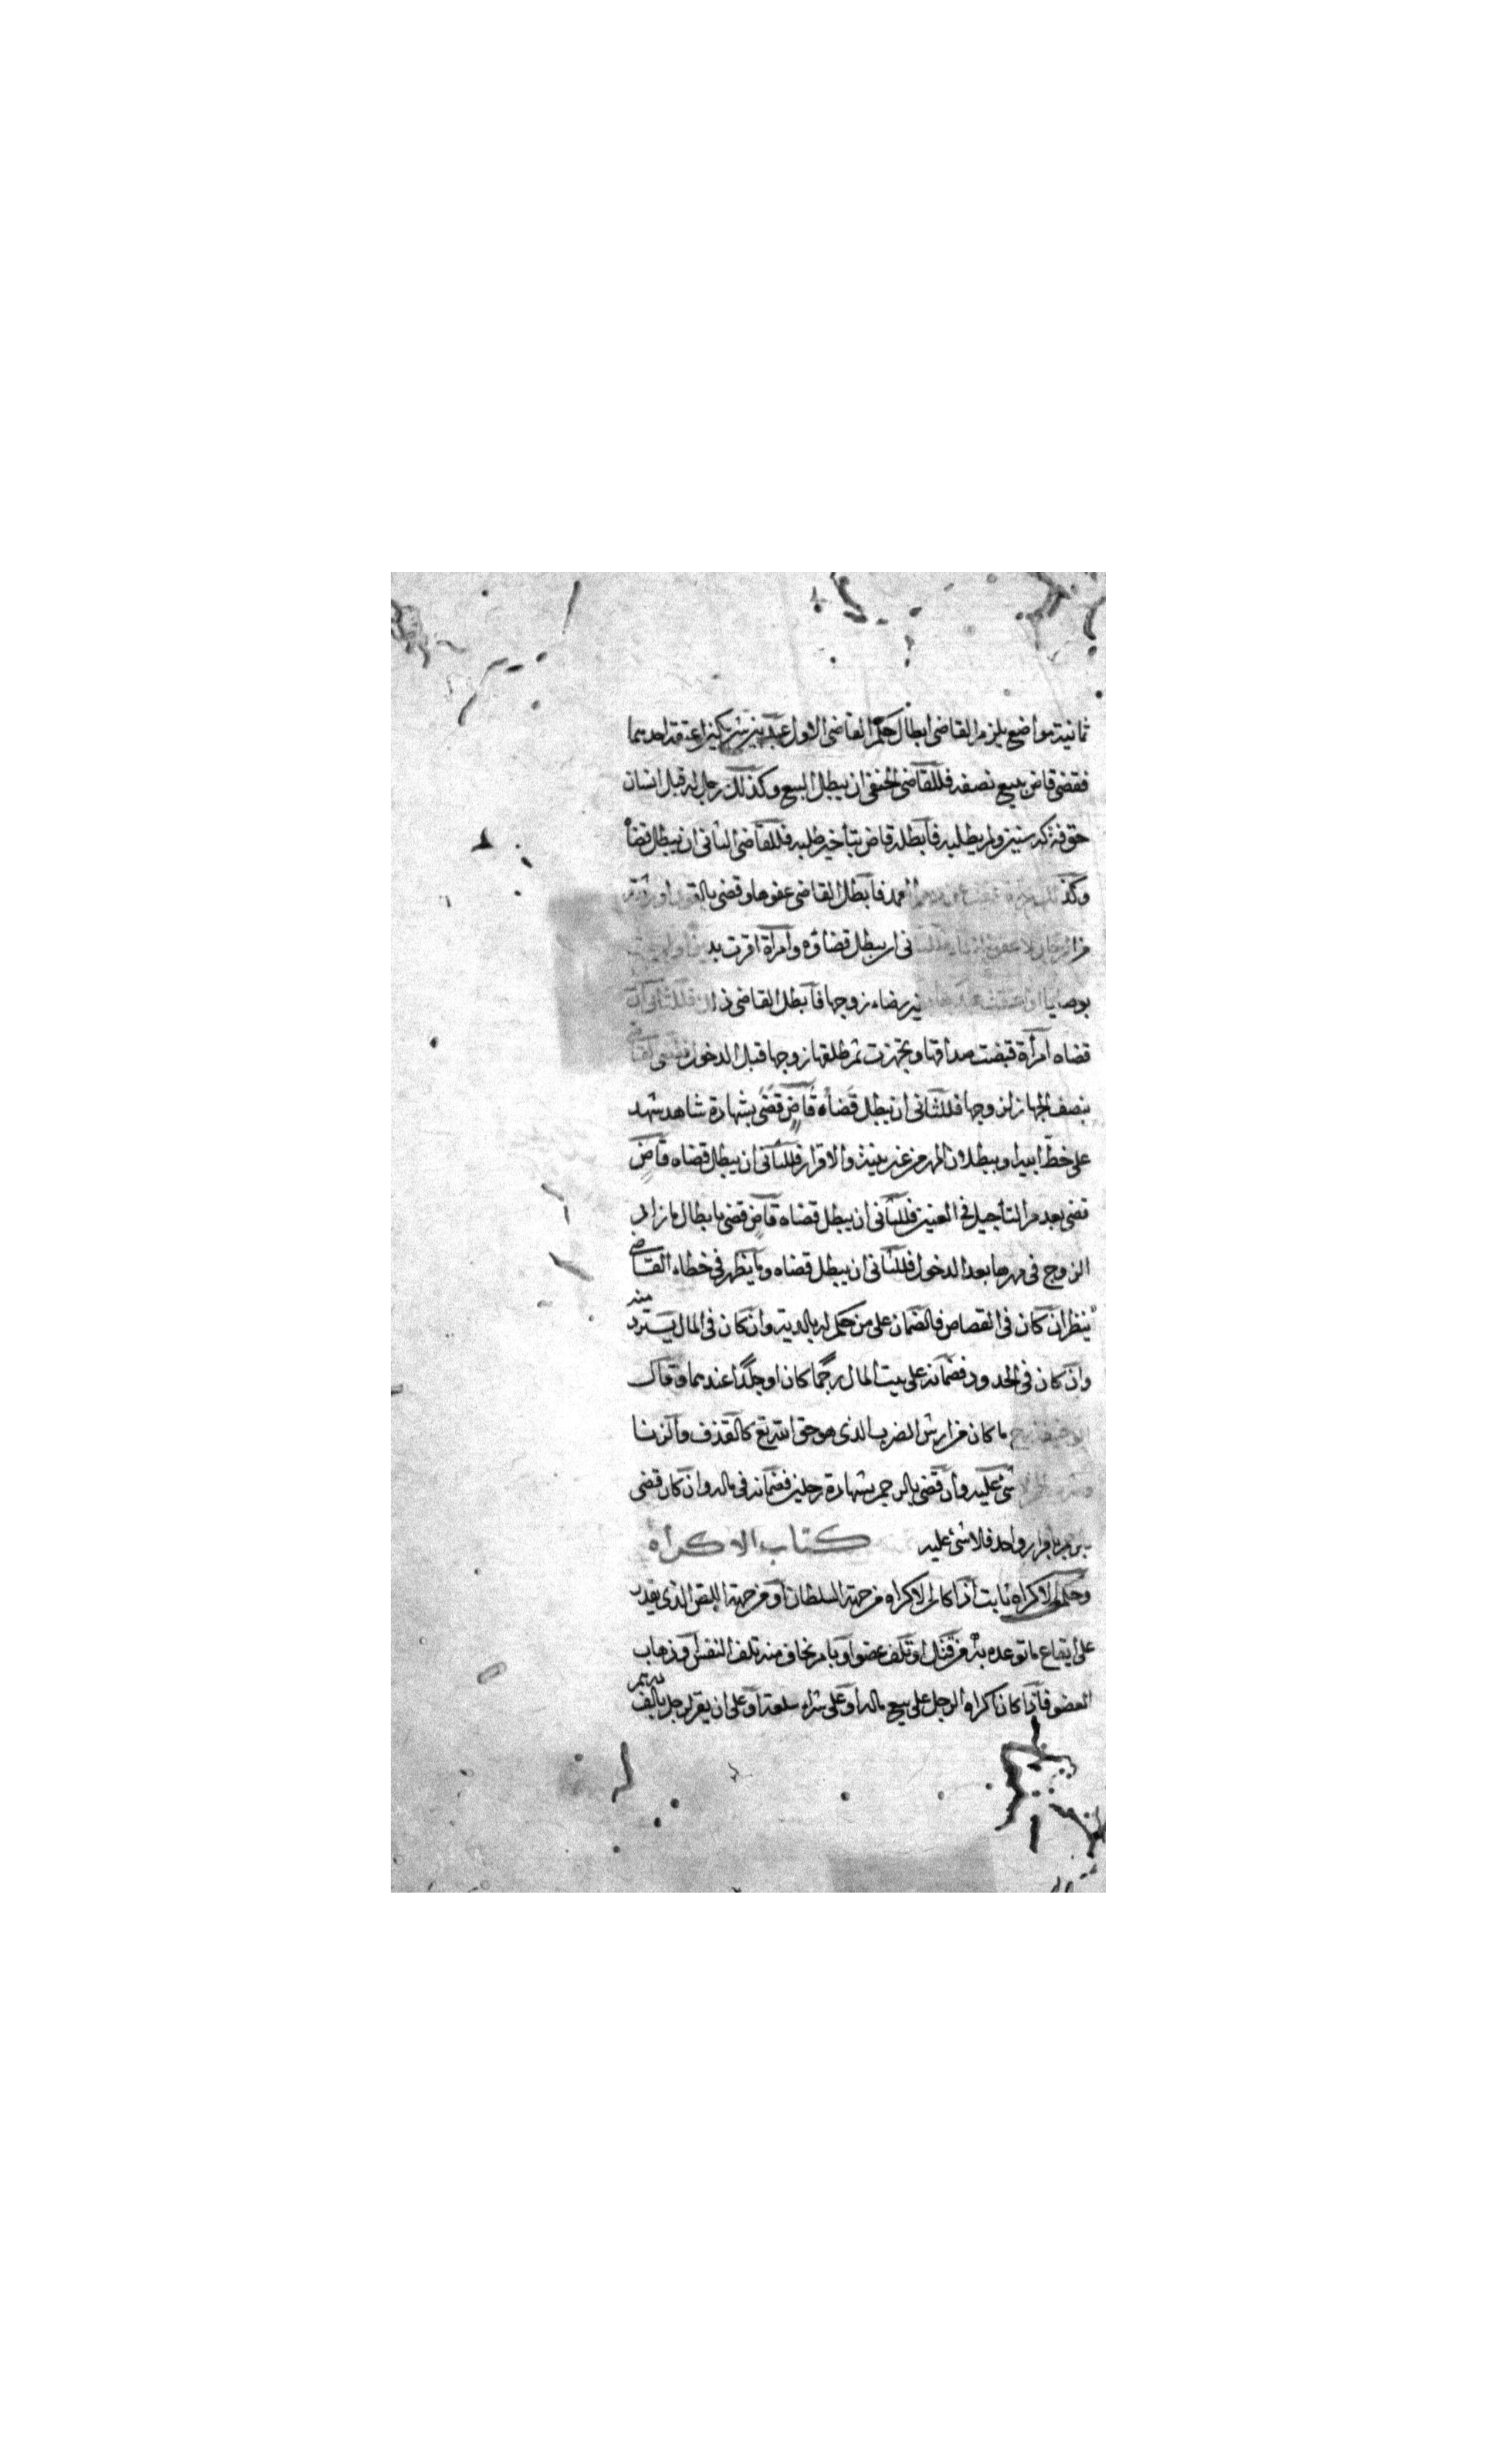 ثمانية مواضع يلزم القاضي ابطال حكم القاضي الاول عبد بين شريكين اعتقه احدهما
فقضى قاض ببيع نصفه فللقاضي الحنفي ان يبطل البيع وكذلك رجل له قبل انسان
حق فتركه سنين ولم يطلبه فابطله قاض بتأخير طلبه فللقاضي الثاني ان يبطل قضاه
وكذلك العمد فابطل القاضي عفوها وقضى بالقود
ني ان يبطل قضاؤه وامرأة اقرت بدين
بوصايا او اعتقت بغير رضاء زوجها فابطل القاضي ذلك فللثاني ان
قضاه امرأة قبضت صداقها وتجهزت ثم طلقها زوجها قبل الدخول فقضى القاضي
بنصف الجهاز لزوجها فللثاني ان يبطل قضاه قاض قضى بشهادة شاهد شهد
على خط ابيه او ببطلان المهر من غير بينة والاقرار فللثاني ان يبطل قضاه قاض
قضى بعدم التأجيل في العنين فللثاني ان يبطل قضاه قاض قضى بابطال ما زاد
الزوج في مهرها بعد الدخول فللثاني ان يبطل قضاه وما يظهر في خطاء القاضي
ينظر ان كان في القصاص فالضمان على من حكم له بالدية وان كان في المال يسترد منه
وان كان في الحدود فضمانه على بيت المال رجما كان او جلدا عندهما وقال
ما كان من ارش الضرب الذي هو حق الله تع كالقذف والزنا
شئ عليه وان قضى بالرجم بشهادة رجلين فضمانه في ماله وان كان قضى
بالرجم باقرار واحد فلا شئ عليه كتاب الاكراه
وحكم الاكراه ثابت اذا كان الاكراه من جهة السلطان او من جهة اللص الذي يقدر
على ايقاع ما توعده به من قتل او تلف عضو او بامر يخاف منه تلف النفس او ذهاب
العضو فاذا كان اكراه الرجل على بيع ماله او على شراء سلعة او على ان يقر لرجل بالف درهم